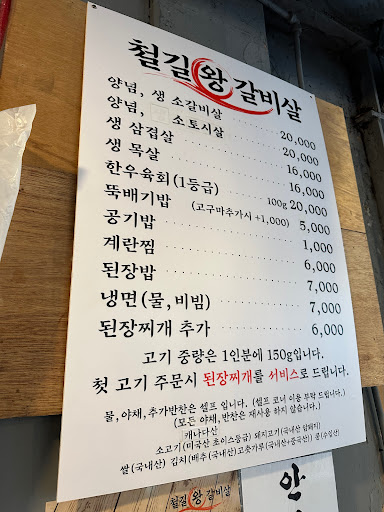 철길 왕 갈비살
양념, 생 소갈비살 20,000
양념, 소토시살 20,000
생 삼겹살 16,000
생 목살 16,000
한우육회(1등급) 100g 20,000
뚝배기밥 (고구마추가시 +1,000) 5,000
공기밥 1,000
계란찜 6,000
된장밥 7,000
냉면(물, 비빔) 7,000
된장찌개 추가 6,000
고기 중량은 1인분에 150g입니다.
첫 고기 주문시 된장찌개를 서비스로 드립니다.
물,야채,추가반찬은 셀프 입니다. (셀프 코너 이용 부탁 드립니다.)
(모든 야채, 반찬은 재사용 하지 않습니다.)
캐나다산
소고기(미국산 초이스등급) 돼지고기(국내산 암퇘지)
쌀(국내산) 김치(배추(국내산)고춧가루(국내산+중국산)) 콩(수입산)
철길 왕 갈비살
안